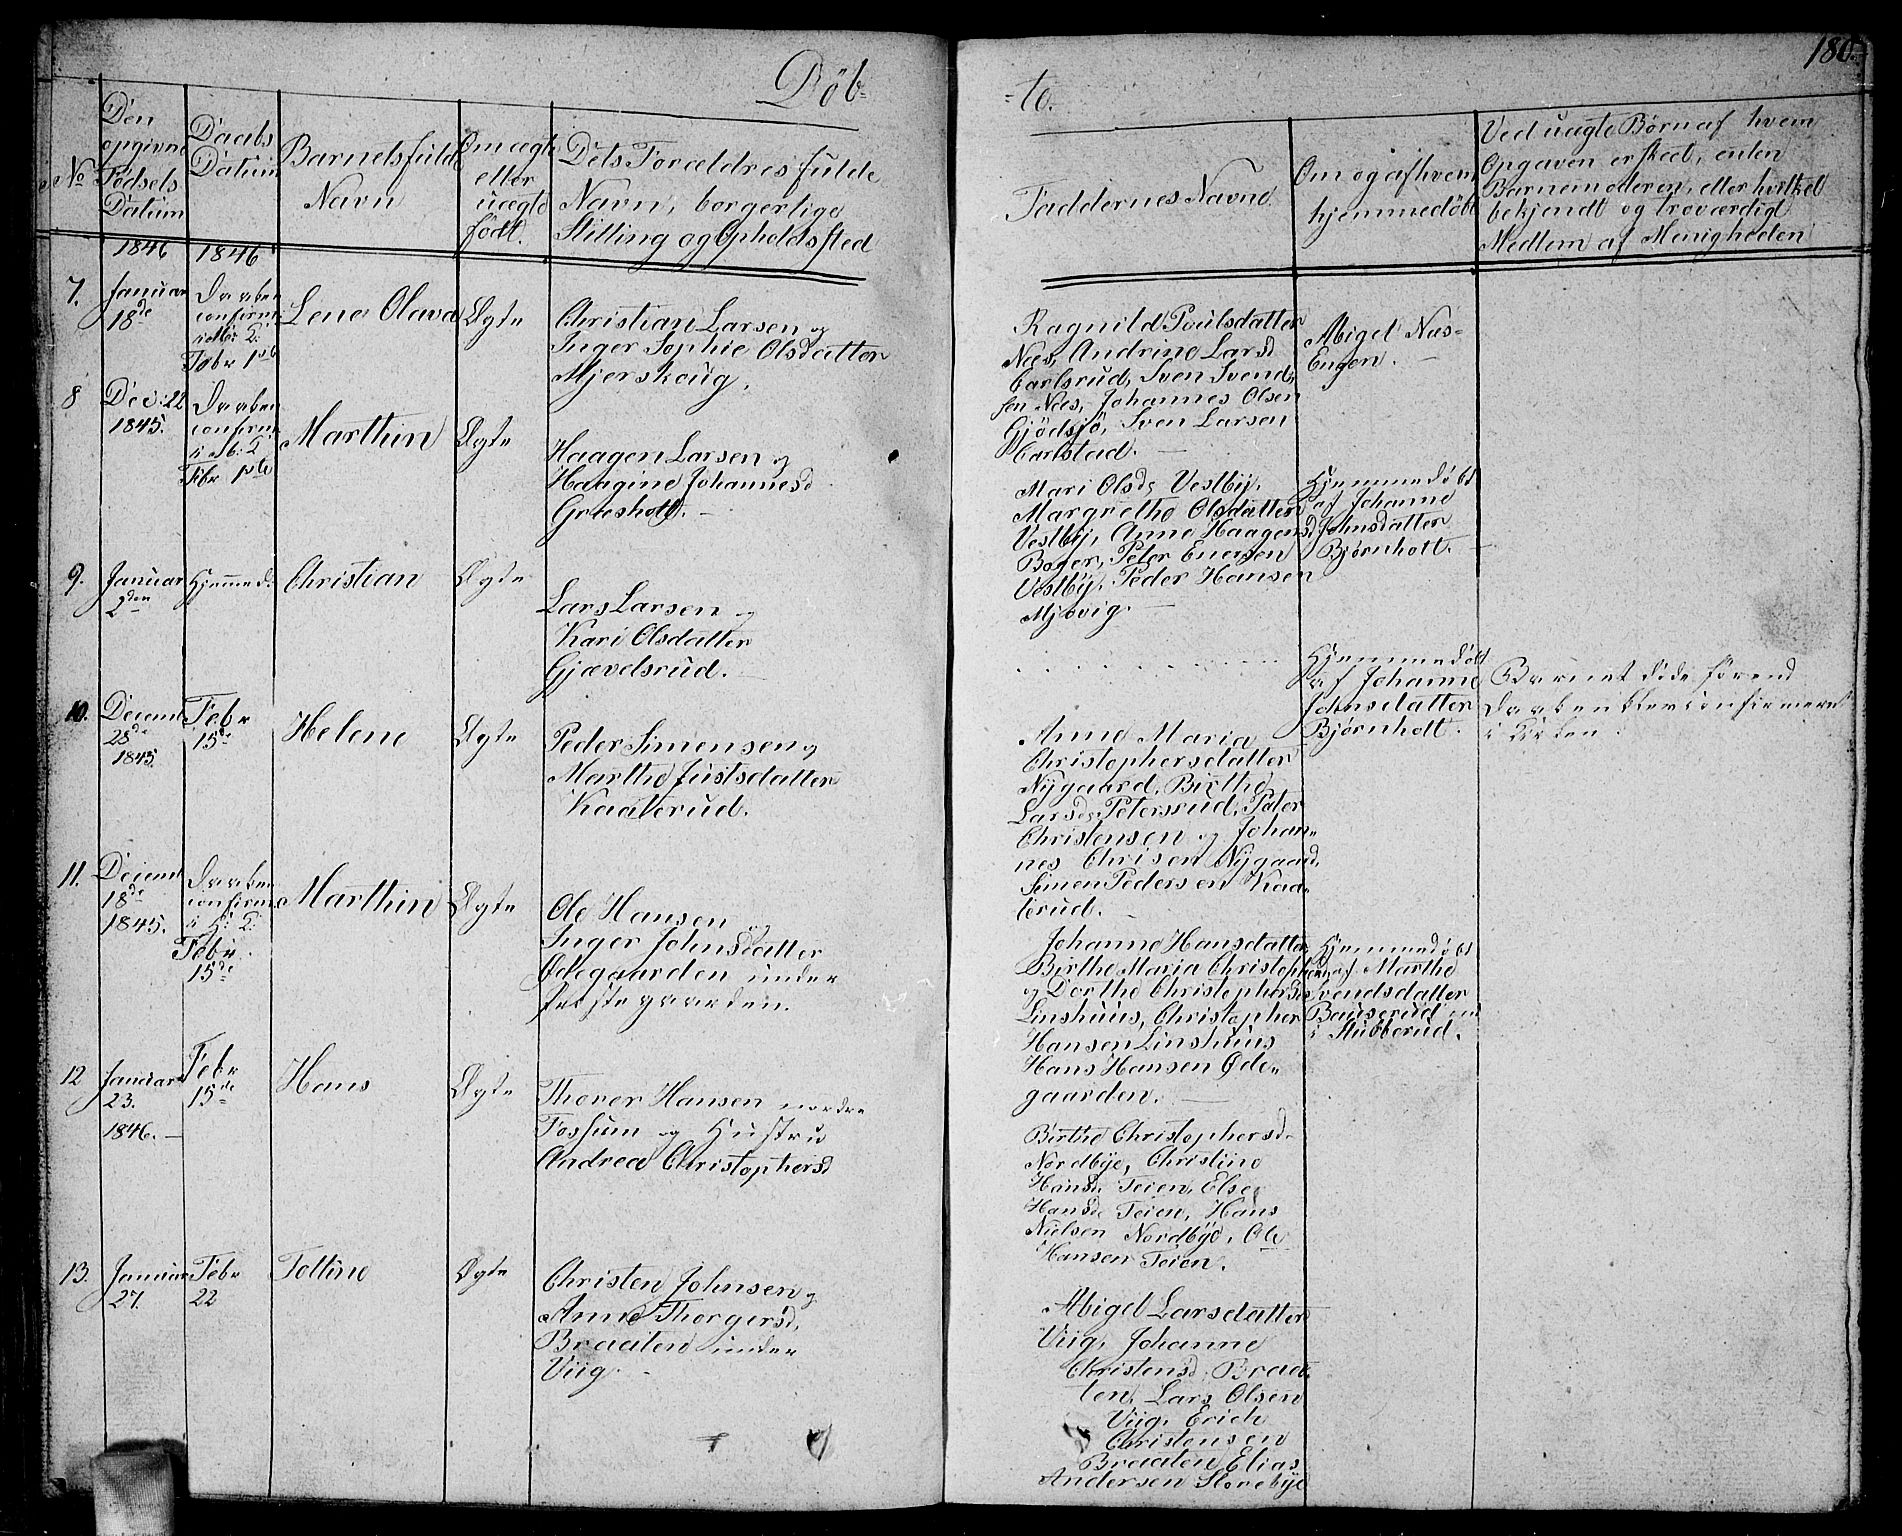 Døb-
-te.
180.
No
Den
opgivne
Fødsels
Datum
Daabs
Datum
Barnets fulde
Navn
Om ægte
eller
uægte
født.
Dets Forældres fulde
Navn, borgerlige
Stilling og Opholdssted
Faddernes Navne
Om og af hvem
hjemmedøbt
Ved uægte Børn af hvem
Opgaven er skeet, enten
Barnemoderen, eller hvilket
bekjendt og troværdigt
Medlem af Menigheden
1846
1846
7.
Januar
18de
Daaben
confirm:
i Næs: K:
Febr 1ste
Lene Olava
Ægte
Christian Larsen og
Inger Sophie Olsdatter
Mjerskoug.
Ragnild Poulsdatter
Næs, Andrine Larsd
Carlsrud, Sven Svend-
sen Næs, Johannes Olsen
Gjödsjö, Sven Larsen
Carlstad. —
Abigel Næs-
Engen. —
8
Dec: 22
1845.
Daaben
confirm:
Febr 1ste
Marthin
Ægte
Haagen Larsen og
Haagine Johannesd
Græsholt. —
Mari Olsd. Vestby,
Margrethe Olsdatter
Vestby, Anne Haagensd
Boger, Peter Enersen
Vestby, Peder Hansen
Mjøvig. —
Hjemmedøbt
af Johanne
Johnsdatter
Bjørnholt. —
9.
Januar
2den
Hjemmed.
Christian
Ægte
Lars Larsen og
Kari Olsdatter
Gjævelsrud. —
Hjemmedøbt
af Johanne
Johnsdatter
Bjørnholt.
Barnet døde førend
Daaben blev confirmeret
i Kirken.
10.
Decemb
28de
1845.
Febr
15de
Helene
Ægte
Peder Simensen og
Marthe Justsdatter
Kaaterud.
Anne Maria
Christophersdatter
Nygaard, Birthe
Larsd. Peterssrud, Peter
Christensen og Johan-
nes Chrisen Nygaard,
Simen Pedersen Kaa-
terud. —
11.
Decemb
18de
1845.
Daaben
confirm:
i H: K:
Febr.
15de
Marthin
Ægte
Ole Hansen
og
Inger Johnsdatter
Ødegaarden under
Prestegaarden.
Johanne Hansdatter
Birthe Maria Christophersd
og Dorthe Christophersd
Linshuus, Christopher
Hansen Linshuus
Hans Hansen Øde-
gaarden. —
Hjemmedøbt
af Marthe
Svendsdatter
Bauserud nu
i Stubberud.
12
Januar
23.
1846. —
Febr
15de
Hans
Ægte
Thorer Hansen nordre
Fossum og Hustru
Andrea Christophersd
Birthe Christophersd.
Nordbye, Christine
Hansd. Teien, Else
Hansd. Teien, Hans
Nielsen Nordbye, Ole
Hansen Teien.
13.
Januar
27.
Febr
22
Tolline
Ægte
Christen Johnsen og
Anne Thorgersd,
Braaten under
Viig. —
Abigel Larsdatter
Viig, Johanne
Christensd, Braa-
ten, Lars Olsen
Viig, Erich
Christensen
Braaten, Elias
Andersen Storebye